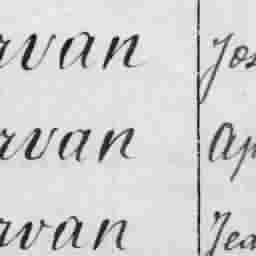 rvan Jos
rvan Ap
rvan Jea